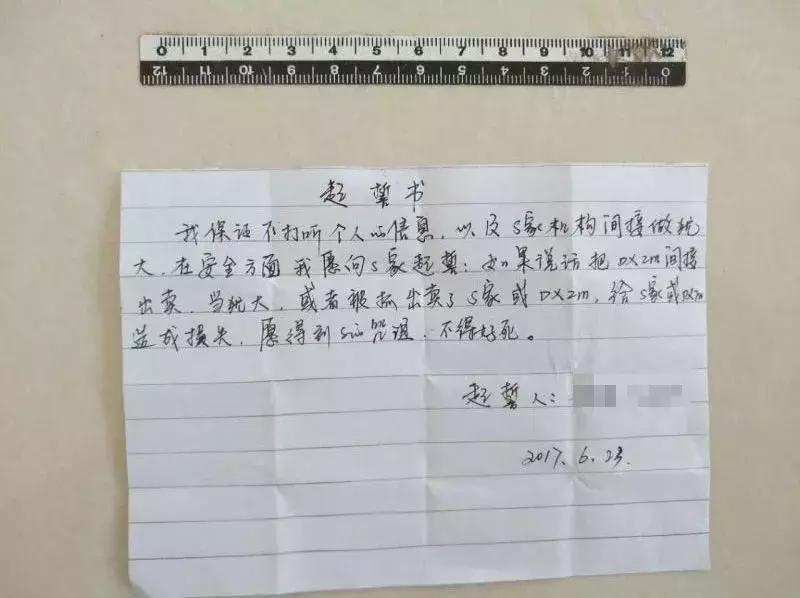 0 1 2 3 4 5 6 7 8 9 10 11 12
12 11 10 9 8 7 6 5 4 3 2 1 0
起誓书
我保证不打听个人的信息，以及S家机构间接做犹
大，在安全方面我愿向S家起誓：如果说话把DXZm间接
出卖，当犹大，或者被抓出卖了S家或DXZm，给S家或DXZm
造成损失，愿得到S的咒诅，不得好死。
起誓人：
2017.6.23.